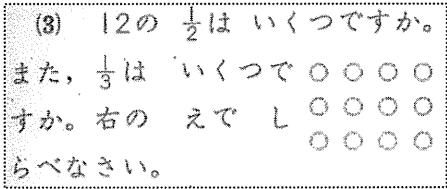 (3) 12の 1/2は いくつですか。
また，1/3は いくつで
すか。右の えで し
らべなさい。